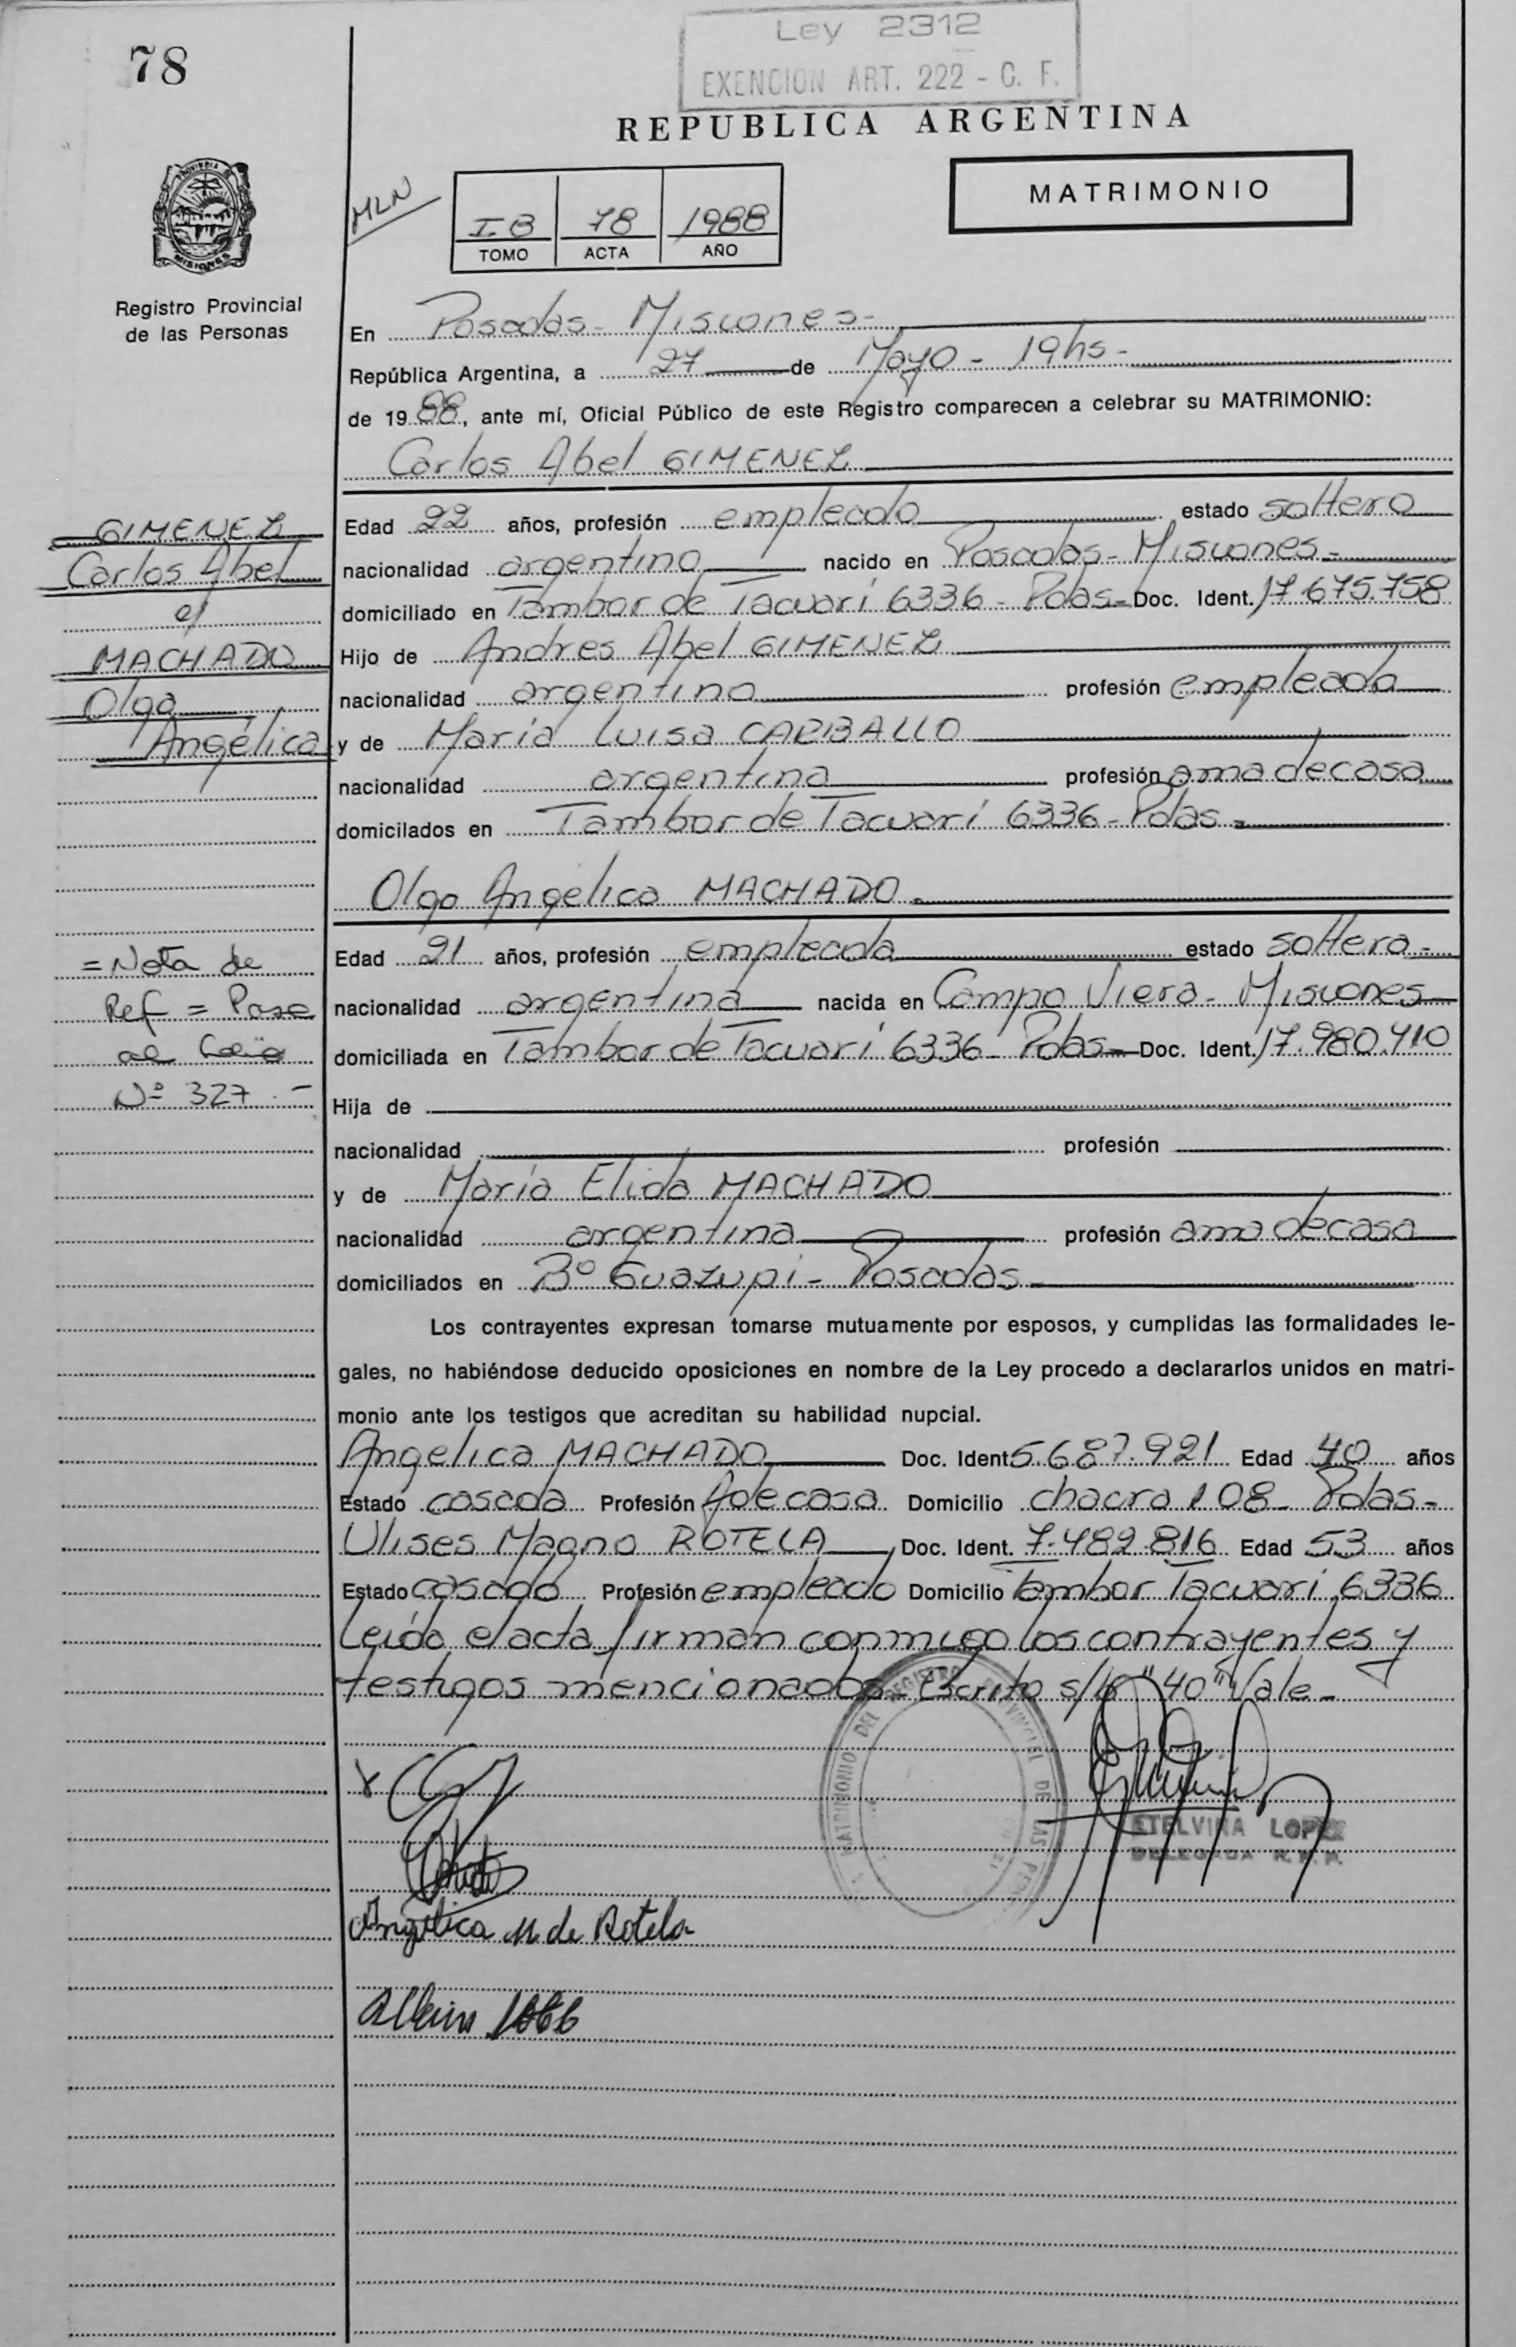 78
Ley 2312
EXENCION ART. 222 - C. F.
REPUBLICA ARGENTINA
PROVINCIA
MISIONES
Registro Provincial
de las Personas
MLN
I B 78 1988
TOMO ACTA AÑO
MATRIMONIO
En Posadas - Misiones -
República Argentina, a 27 de Mayo - 19hs -
de 1988, ante mí, Oficial Público de este Registro comparecen a celebrar su MATRIMONIO:
Carlos Abel GIMENEZ
GIMENEZ
Carlos Abel
c/
MACHADO
Olga
Angélica
Edad 22 años, profesión empleado estado soltero
nacionalidad argentino nacido en Posadas - Misiones -
domiciliado en Tambor de Tacuarí 6336 - Pdas - Doc. Ident. 17.675.758
Hijo de Andres Abel GIMENEZ
nacionalidad argentino profesión empleado
y de María Luisa CARBALLO
nacionalidad argentina profesión ama de casa
domicilados en Tambor de Tacuarí 6336 - Pdas -
Olga Angélica MACHADO
= Nota de
Ref = Pase
al
Nº 327 . -
Edad 21 años, profesión empleada estado soltera -
nacionalidad argentina nacida en Campo Viera - Misiones -
domiciliada en Tambor de Tacuarí 6336 - Pdas - Doc. Ident. 17.980.410
Hija de
nacionalidad profesión
y de María Elida MACHADO
nacionalidad argentina profesión ama de casa
domiciliados en Bº Guazupi - Posadas
Los contrayentes expresan tomarse mutuamente por esposos, y cumplidas las formalidades le-
gales, no habiéndose deducido oposiciones en nombre de la Ley procedo a declararlos unidos en matri-
monio ante los testigos que acreditan su habilidad nupcial.
Angélica MACHADO Doc. Ident 5.687.921 Edad 40 años
Estado casada Profesión A de casa Domicilio chacra 108 - Pdas -
Ulises Magno ROTELA Doc. Ident. 7.482.816 Edad 53 años
Estado casado Profesión empleado Domicilio Tambor Tacuarí 6336
Leída el acta firman conmigo los contrayentes y
testigos mencionados - Escrito s/b "40" Vale -
MATRIMONIO DEL REGISTRO PROVINCIAL DE LAS
ETELVINA LOPEZ
DELEGADA R. P. P.
Angelica M. de Rotela